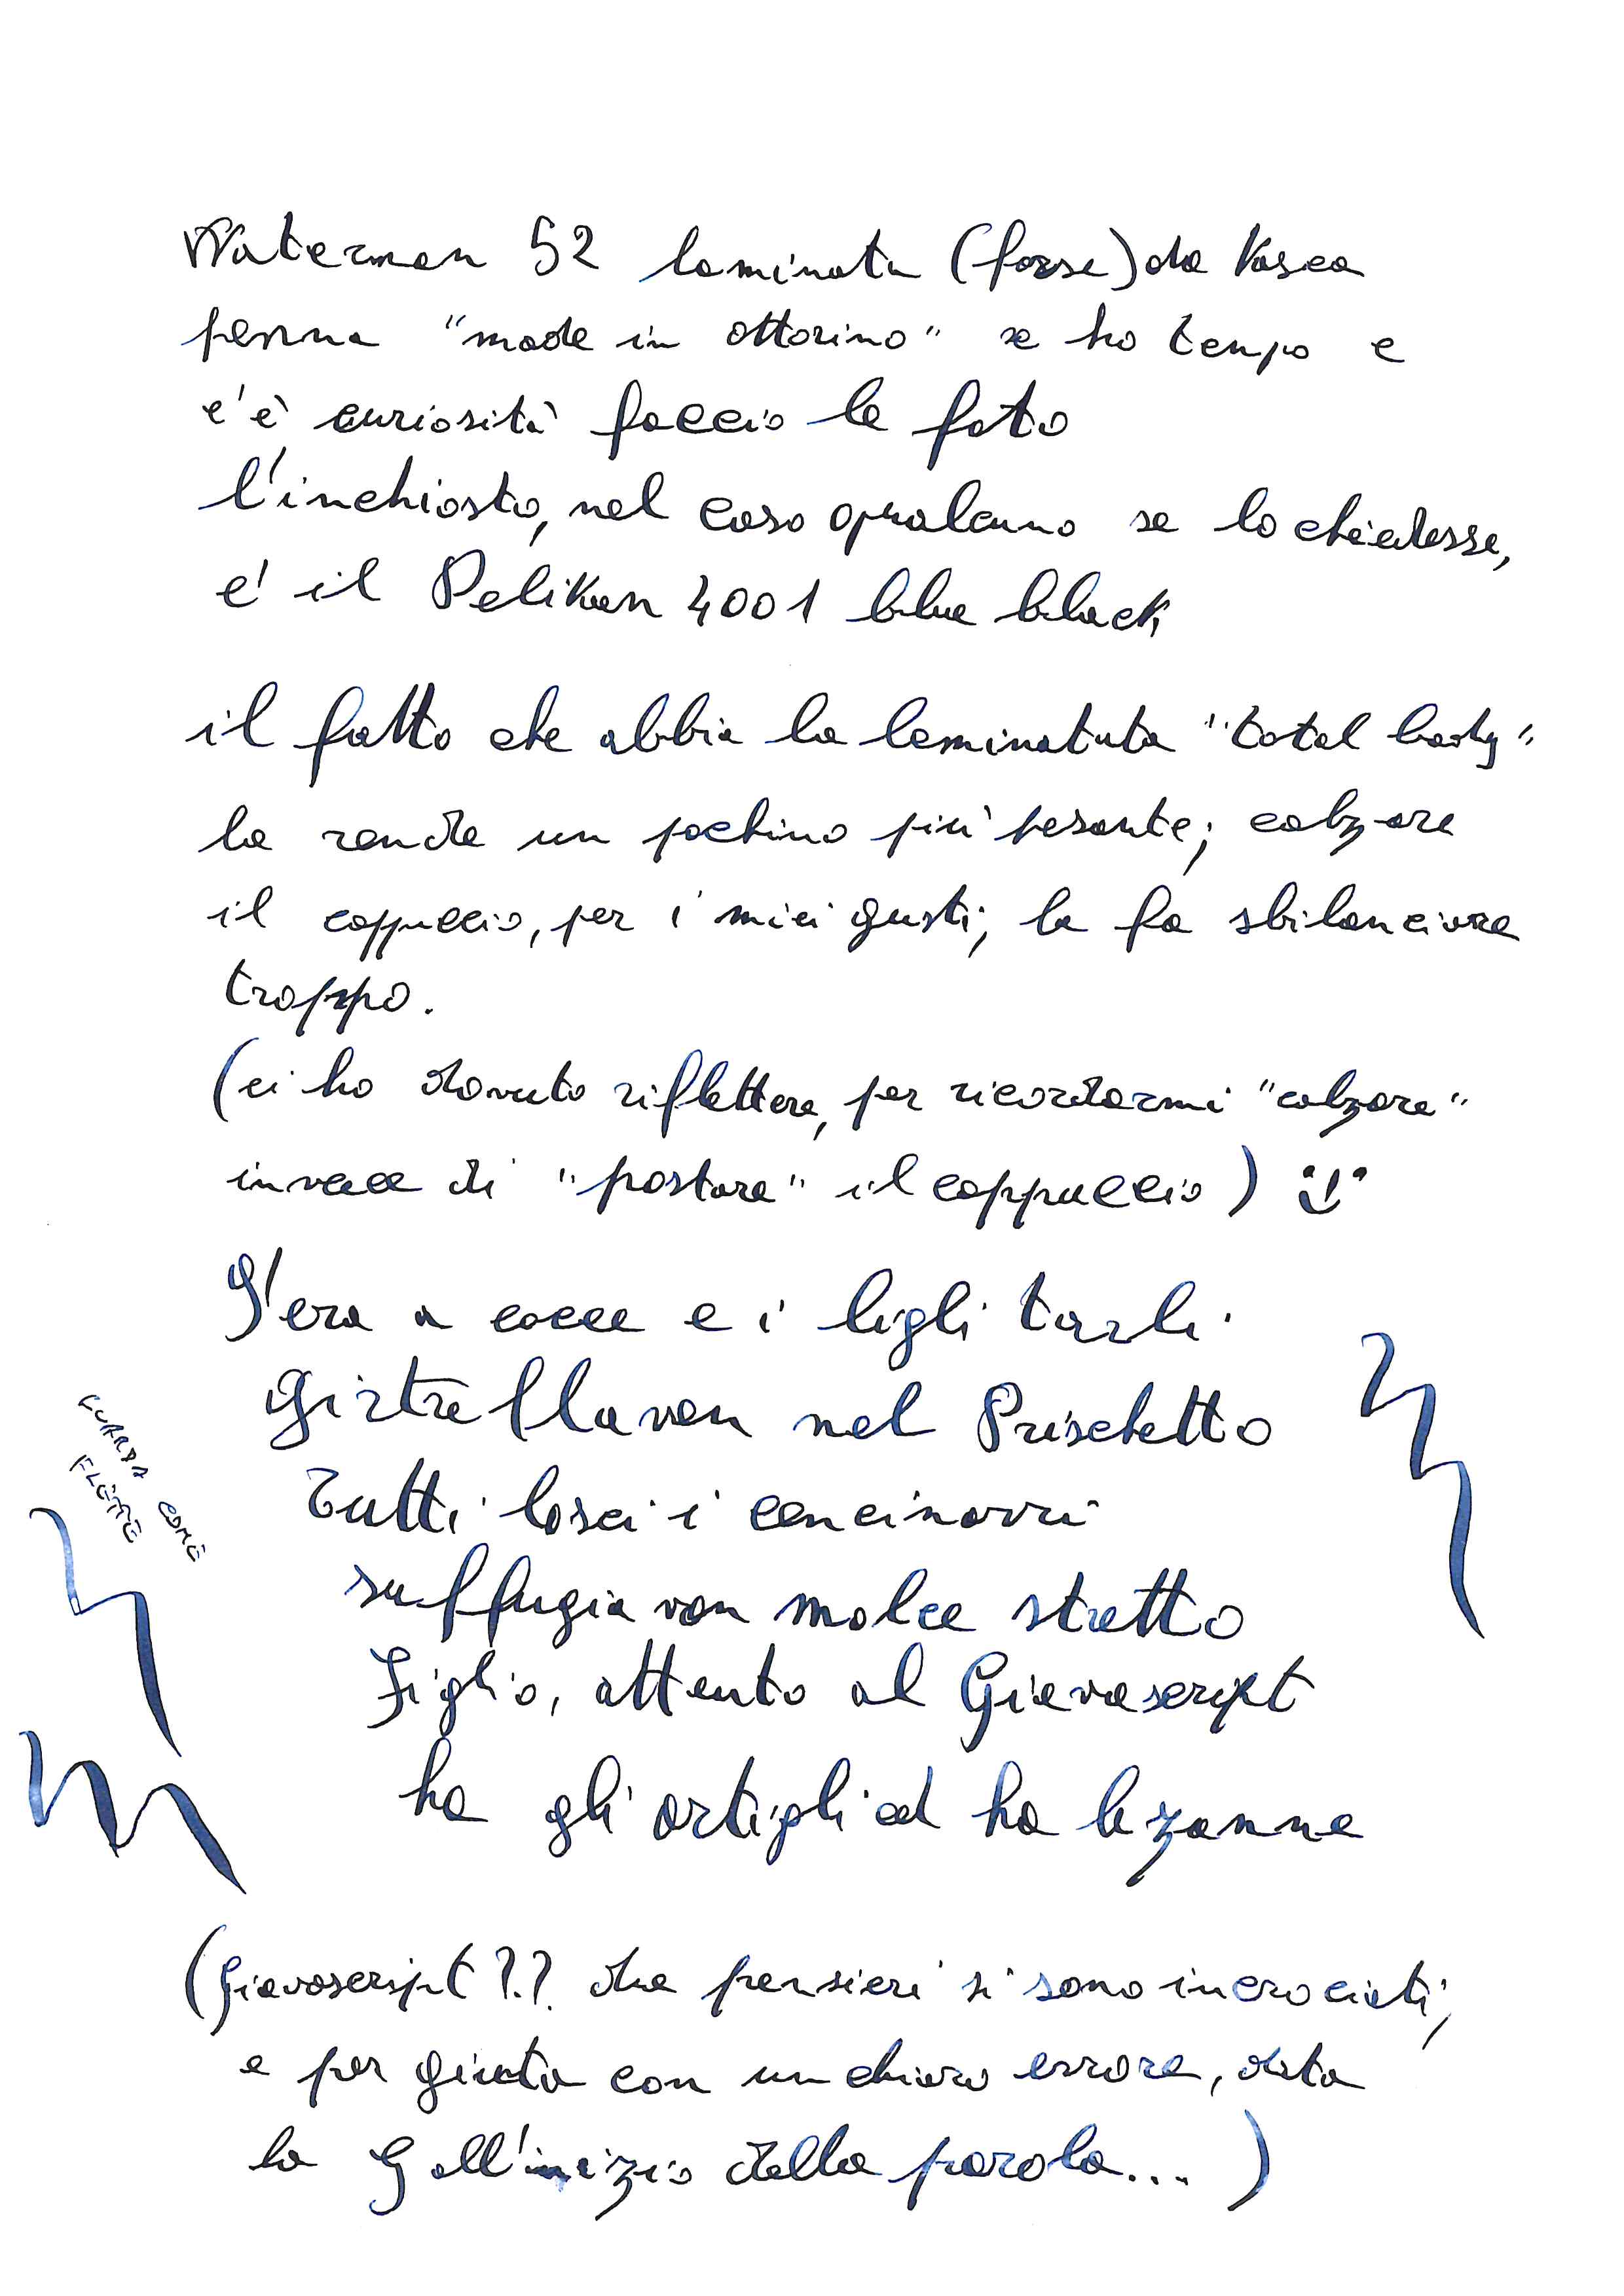 Waterman 52 laminata (forse) da Vasca
penna "made in ottorino" se ho tempo e
c'è curiosità faccio le foto
l'inchiosto, nel caso qualcuno se lo chiedesse,
e' il Pelikan 4001 blue black
il fatto che abbia la laminatuta "total body"
la rende un pochino più pesante; calzare
il cappuccio, per i miei gusti, la fa sbilanciare
troppo.
(ci ho dovuto riflettere, per ricordarmi "calzare"
invece di "postare" il cappuccio) :-)
S'era a cocce e i ligli tarli
girtrellavan nel Prischetto
GUARDA COME
FLETTE
Tutti losci i cencinarri
suffugiavan molce stretto
Figlio, attento al Giavascript
ha gli artigli ed ha le zanne
(Giavascript?? due pensieri si sono incrociati,
e per giunta con un chiaro errore, data
la G all'inizio della parola...)